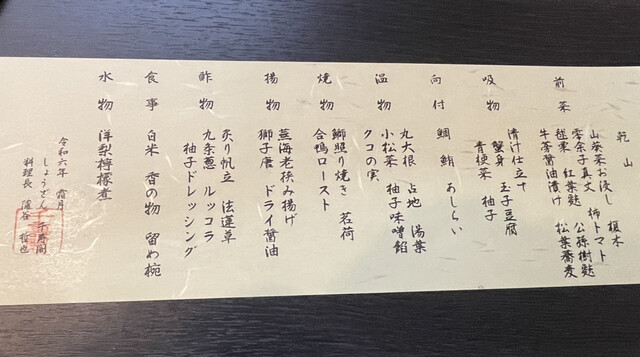 乾山
前菜 山葵菜お浸し 榎木
零余子真丈 柿トマト
毬栗 紅葉麩 公孫樹麩
牛蒡醤油漬け 松葉蕎麦
吸物 清汁仕立て 玉子豆腐
蟹身
青梗菜 柚子
向付 鯛 鮪 あしらい
温物 丸大根 占地 湯葉
小松菜 柚子味噌餡
クコの実
焼物 鰤照り焼き 茗荷
合鴨ロースト
揚物 海老挟み揚げ
獅子唐 ドライ醤油
酢物 炙り帆立 法蓮草
九条葱 ルッコラ
柚子ドレッシング
食事 白米 香の物 留め椀
水物 洋梨檸檬煮
令和六年 霜月
しょうざん 千寿閣
料理長 哲也